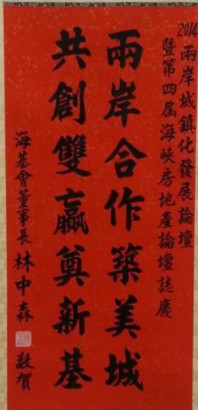 2014兩岸城鎮化發展論壇
暨第四屆海峽房地產論壇誌慶
兩岸合作築美城
共創雙贏奠新基
海基會董事長 林中森 敬賀